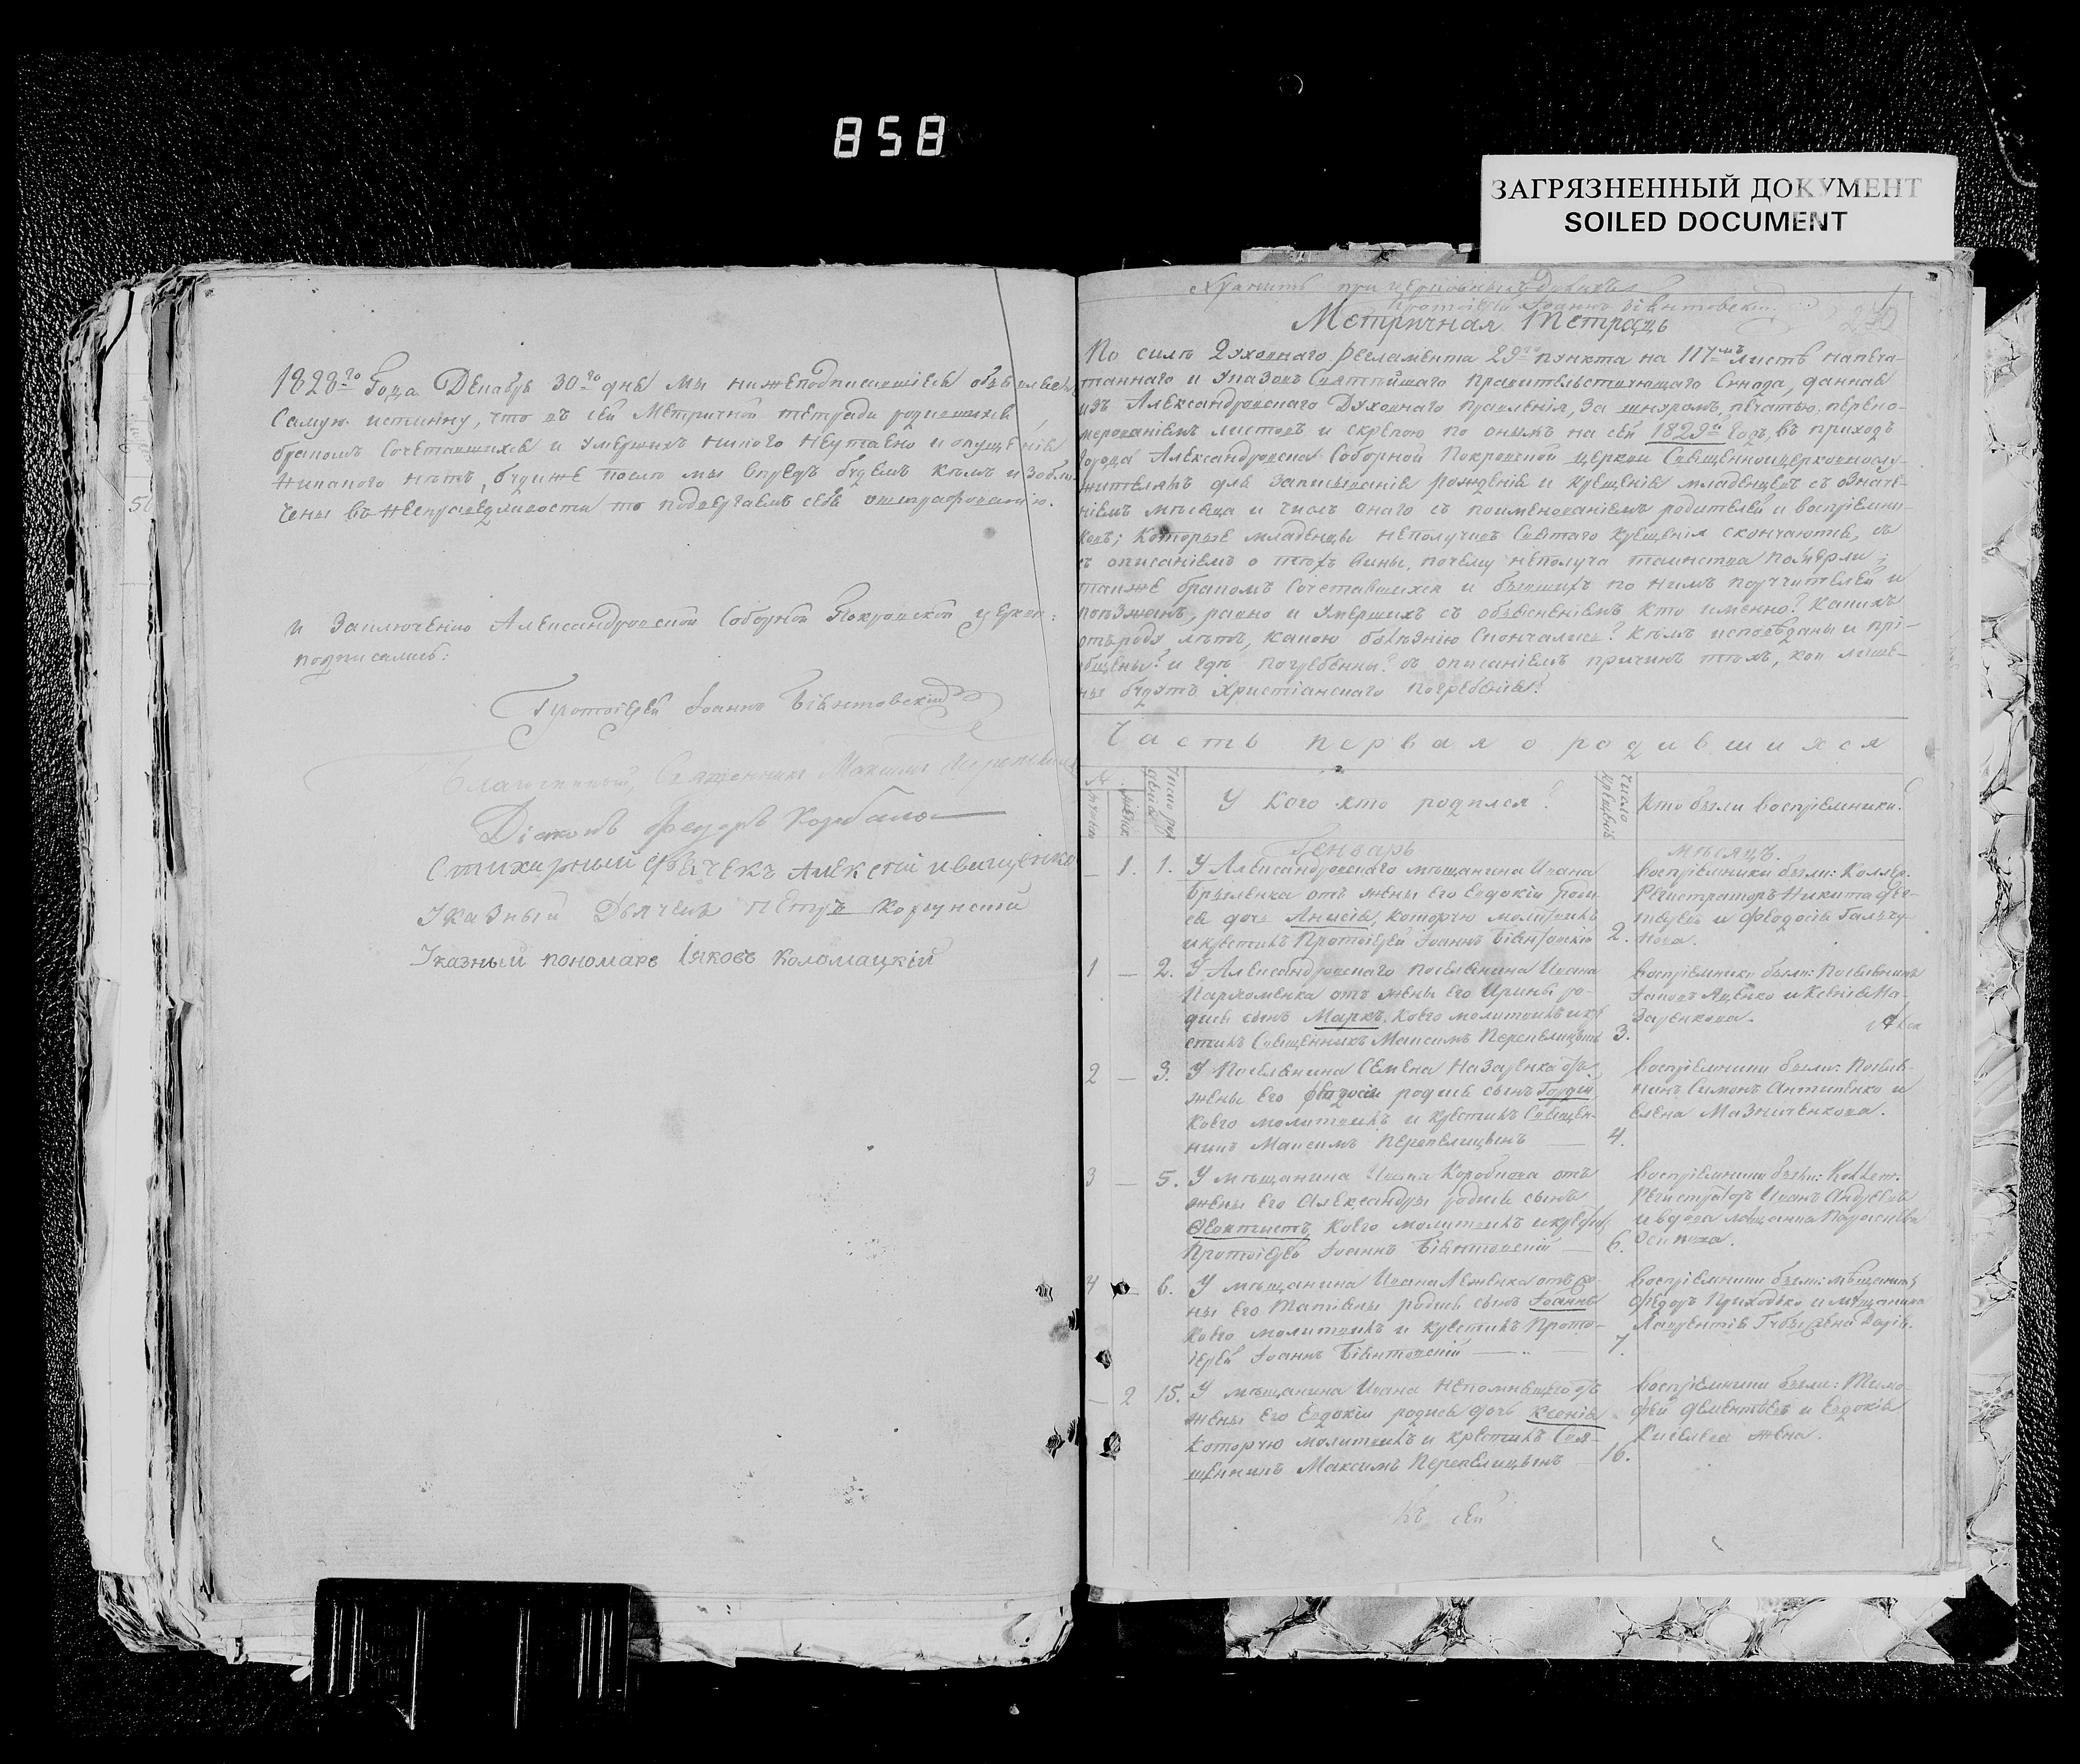 858
ЗАГРЯЗНЕННЫЙ ДОКУМЕНТ
SOILED DOCUMENT
1828го Года Декабря 30го дня мы нижеподписавшіеся объявляемъ
самую истинну, что въ сей Метричной тетради родившихся,
бракомъ сочетавшихся и умершихъ никого неутаено и опущенія
никакого нѣтъ, будиже послѣ мы впредь будемъ кѣмъ изобли-
чены въ несправедливости то подвергаемъ себя оштрафованію.
и заключенію Александровской Соборной Покровской церкви:
подписались:
Протоіерей Іоаннъ Біянтовскій
Благочинный, Священникъ Максимъ
Діаконъ Федоръ Корбало
Стихарный дьячекъ Алексій иващенко
Указный Дьячекъ Петръ Коргунскій
Указный пономарь Іяковъ Коломацкій
Хранить при церковныхъ
Протоіерей Іоаннъ Біянтовскій
Метричная Тетрадь
По силѣ Духовнаго Регламента 29го пункта на 117мъ листѣ напеча-
таннаго и Указовъ Святѣйшаго Правительствующаго Сѵнода, данная
изъ Александровскаго Духовнаго Правленія, за шнуромъ, печатью, перено-
мерованіемъ листовъ и скрепою по онымъ на сей 1829й Годъ, въ приходъ
города Александровска Соборной Покровской церкви Священноицерковнослу-
жителямъ для записыванія рожденія и крещенія младенцевъ съ означе-
ніемъ мѣсяца и числъ онаго съ поименованіемъ родителей и воспріемни-
ковъ; Которые младенцы неполучивъ Святаго крещенія скончаются, съ
описаніемъ о тѣхъ вины, почему неполуча таинства померли;
также бракомъ Сочетавшихся и бывшихъ по нимъ поручителей и
поѣзжанъ, равно и Умершихъ съ объясненіемъ кто именно? Какихъ
отъроду лѣтъ, какою болѣзнію скончались? Кѣмъ исповѣданы и прі-
общены? и гдѣ погребенны? съ описаніемъ причинъ тѣхъ, кои лише-
ны будутъ Христіанскаго погребенія?
Часть первая о родившихся
Число рожденія
У кого кто родился?
Число крещенія
Кто были воспріемники?
Генварь
мѣсяцъ.
— 1. 1. У Александровскаго мѣщанина Ивана
отъ жены его Евдокіи роди-
ся дочь Анисія, которую молитвилъ
и крестилъ Протоіерей Іоаннъ Біянтовскій 2.
Воспріемники были: Колляр.
Регистраторъ Никита
и Феодосія
1 — 2. У Александровскаго поселянина Ивана
Пархоменка отъ жены его Ирины ро-
дися сынъ Маркъ. Коего молитвилъ и кр
стилъ Священникъ Максимъ Перепелицынъ 3.
Воспріемники были: Поселянинъ
Яковъ Яценко и Ксенія На-
заренкова.
2 — 3. У Поселянина Семена Назаренка отъ
жены его Феодосіи родися сынъ Гордій
коего молитвилъ и крестилъ Священ-
никъ Максимъ Перепелицынъ — 4.
Воспріемники были: Поселя-
нинъ Симонъ Антипенко и
Елена Мазниченкова.
3 — 5. У мѣщанина Ивана Коробкова отъ
жены его Александры родися сынъ
Ѳеоктистъ, коего молитвилъ и крести
Протоіерей Іоаннъ Біянтовскій — 6.
Воспріемники были: Коллеж.
Регистраторъ Иванъ Андреевъ
и вдова мѣщанка Параскева
Осипова.
4 — 6. У мѣщанина Ивана Леженка отъ же-
ны его Татіяны родися сынъ Іоаннъ
коего молитвилъ и крестилъ Прото-
іерей Іоаннъ Біянтовскій — 7.
Воспріемники были: мѣщанинъ
Федоръ Приходько и мѣщанина
Лаврентія Губы жена Дарія.
— 2 15. У мѣщанина Ивана Непомнящего отъ
жены его Евдокіи родися дочь Ксенія
Которую молитвилъ и крестилъ Свя-
щенникъ Максимъ Перепелицынъ — 16.
Воспріемники были: Тимо-
фей Дементьевъ и Евдокія
Киселева жена.
Къ сей